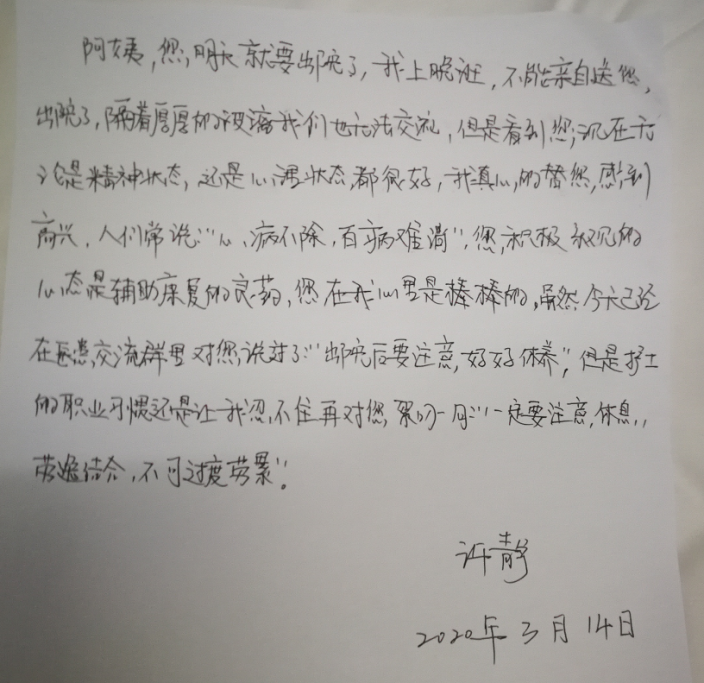 阿姨，您明天就要出院了，我上晚班，不能亲自送您
出院了，隔着厚厚的玻璃我们也无法交流，但是看到您现在无
论是精神状态，还是心理状态，都很好，我真心的替您感到
高兴，人们常说："心病不除，百病难消"，您积极乐观的
心态是辅助康复的良药，您在我心里是棒棒的，虽然今天已经
在医患交流群里对您说过了："出院后要注意，好好休养"，但是护士
的职业习惯还是让我忍不住再对您絮叨一句："一定要注意休息，
劳逸结合，不可过度劳累"。
许静
2020年3月14日